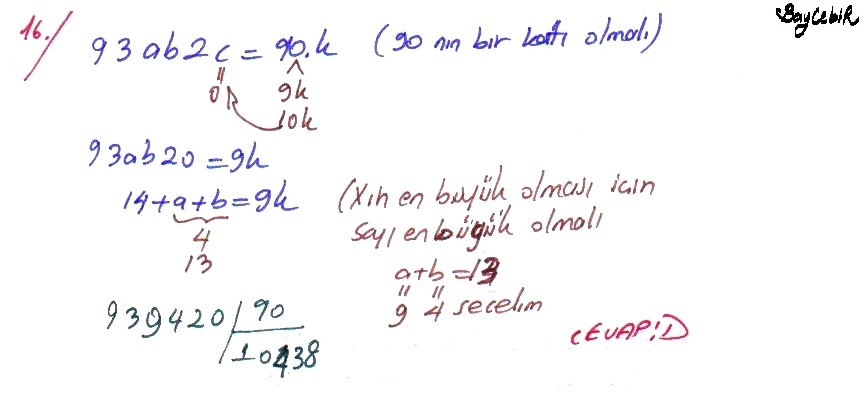 BayCebiR
16.
93ab2c = 90.k (90 nın bir katı olmalı)
0 9k
10k
93ab20 = 9k
14+a+b = 9k (X in en büyük olması için
4 sayı en büyük olmalı
13 a+b = 13
9 4 seçelim
939420 | 90
10438
CEVAP: D